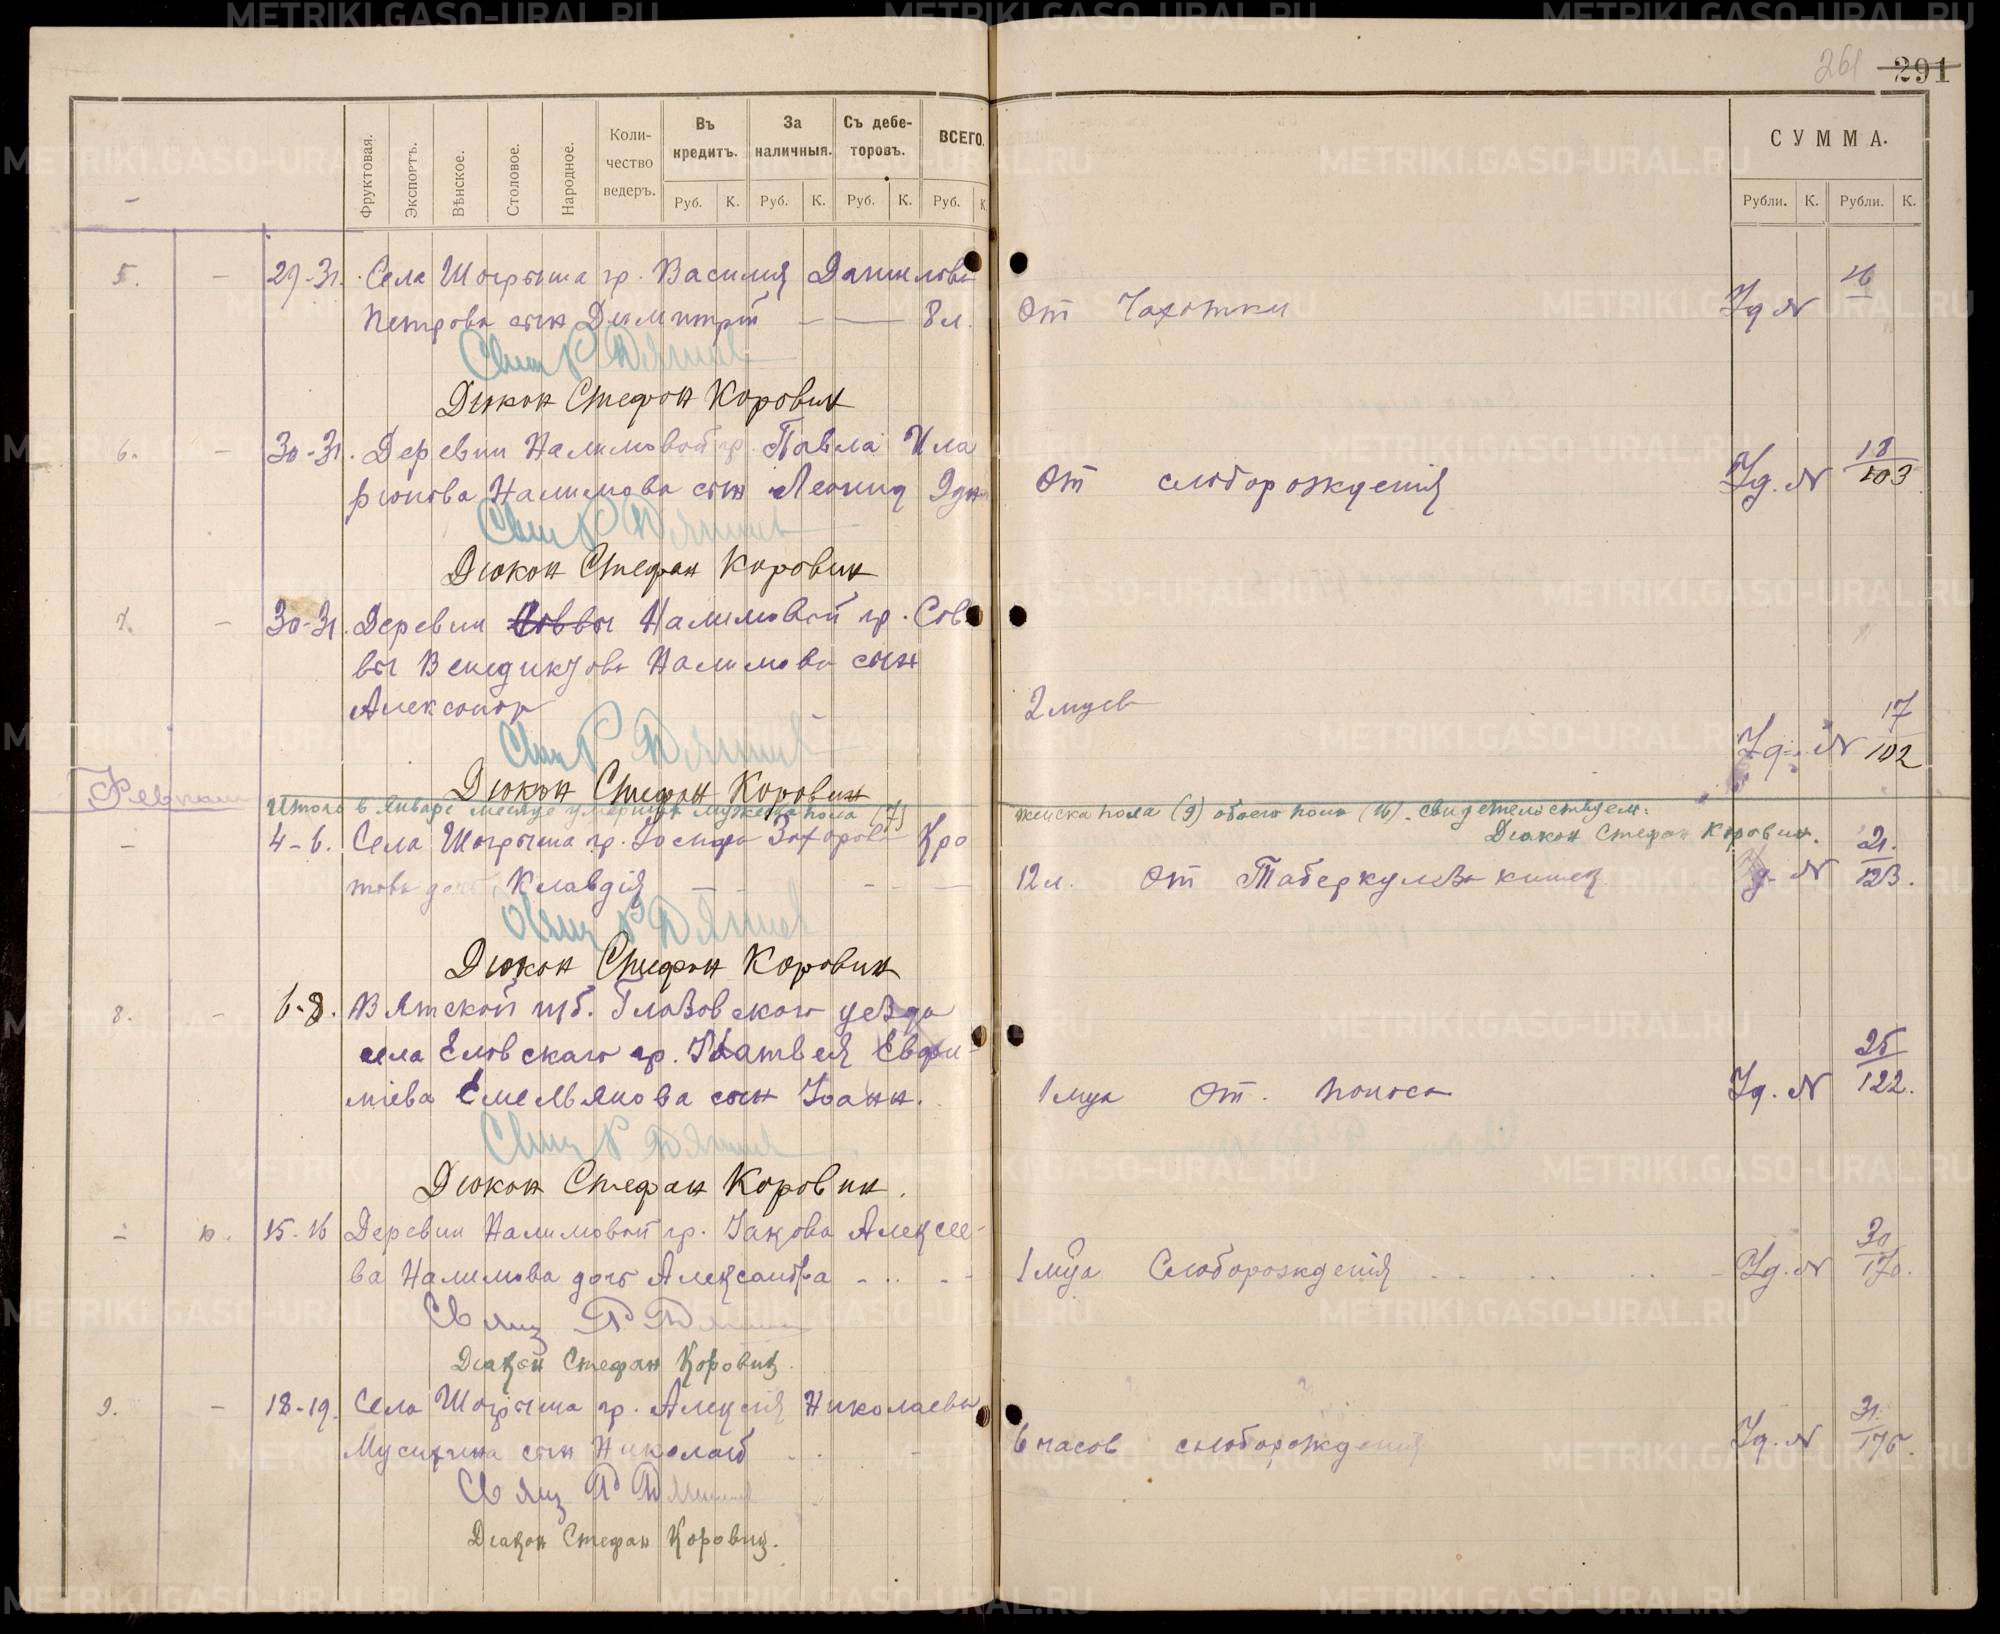 261 291
Фруктовая. Экспортъ. Вѣнское. Столовое. Народное. Коли-чество ведеръ. Въ кредитъ. За наличныя. Съ дебе-торовъ. ВСЕГО.
Руб. К. Руб. К. Руб. К. Руб. К.
СУММА.
Рубли. К. Рубли. К.
5. - 29-31. Села Шогрыша гр. Василия Данилова
Петрова сын Димитрій 8 л. От Чахотки Уд № 16
Дияконъ Стефан Коровин
6. - 30-31. Деревни Налимовой гр. Павла Ила
рионова Налимова сын Леонид 9 дн От слаборождения Уд. № 18/103
Диякон Стефан Коровин
7. - 30-31. Деревни Саввы Налимовой гр. Сав
вы Венедиктова Налимова сын
Александр 2 муев Уд. № 17/102
Диякон Стефан Коровин
Февраль
Итого в январе месяце умерших мужска пола (7) женска пола (9) обоего пола (16). свидетельствуем:
Диакон Стефан Коровин.
- 4-6. Села Шогрыша гр. Иосифа Захарова Кро
това дочь Клавдія 12 л. От Таберкулёза кишек Уд. № 21/123.
Диякон Стефан Коровин
8. - 6-8. Вятской губ. Глазовского уезда
села Еловскаго гр. Матвея Евфи-
міева Емельянова сын Іоанн. 1 мца От. поноса Уд. № 25/122.
Диякон Стефан Коровин.
- 10. 15-16 Деревни Налимовой гр. Iакова Алексее-
ва Налимова дочь Александра 1 мца Слаборождения Уд. № 30/170.
Диакон Стефан Коровин.
9. - 18-19. Села Шогрыша гр. Алексія Николаева
Мусихина сын Николай 6 часов слаборождения Уд. № 31/175.
Диакон Стефан Коровин.
METRIKI.GASO-URAL.RU